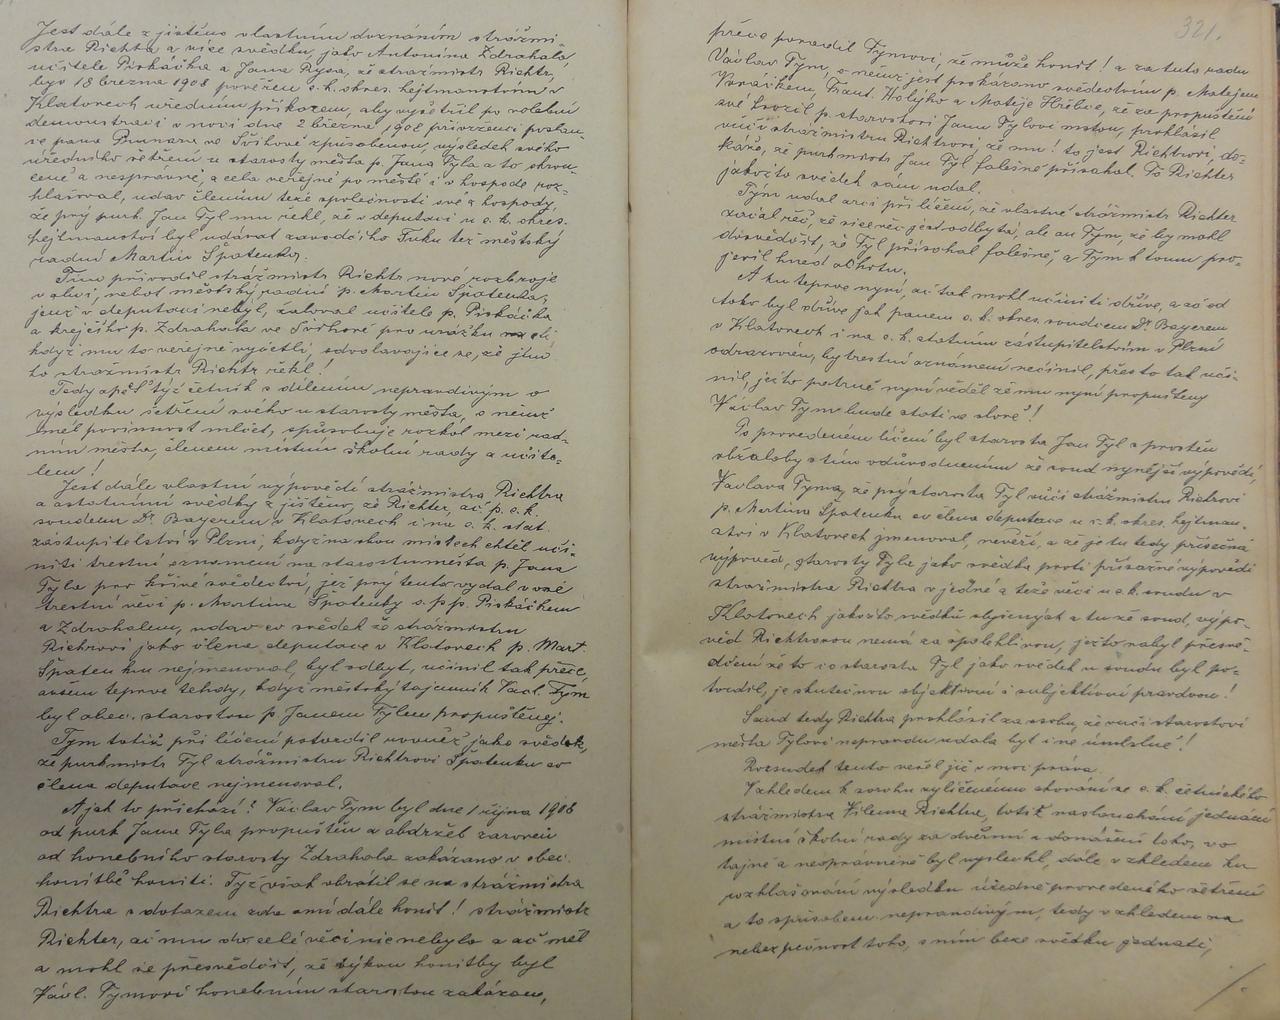 Jest dále zjištěno vlastním doznáním strážmi-
stra Richtra a více svědků, jako Antonína Zdrahala,
učitele Piskáčka a Jana Rysa, že strážmistr Richtr,
byv 18 března 1908 pověřen c. k. okres. hejtmanstvím v
Klatovech úředním příkazem, aby vyšetřil po volební
demonstraci v noci dne 2 března 1908 přívrženci poslan-
ce pana ve způsobenou, výsledek svého
úředního šetření u starosty města p. Jana Tyla a to zkrou-
ceně a nesprávně, a cela veřejně po městě i v hospodě roz-
hlašoval, udav členům téže společnosti své z hospody,
že prý purk. Jan Tyl mu řekl, že v deputaci u c. k. okres.
hejtmanství byl udávat závodčího Tuku též městský
radní Martin Špatenka.
Tím přivodil strážmistr Richtr nové rozbroje
v obci, neboť městský radní p. Martin Špatenka,
jenž v deputaci nebyl, žaloval učitele p. Piskáčka
a krejčího p. Zdrahala ve pro urážku na cti
když mu to veřejně vyčetli, odvolávajíce se, že jim
to strážmistr Richtr řekl!
Tedy opět týž četník sdílením nepravdivým o
výsledku šetření svého u starosty města, o němž
měl povinnost mlčet, způsobuje rozkol mezi rad-
ním města, členem místní školní rady a učite-
lem!
Jest dále vlastní výpovědí strážmistra Richtra
a ostatními svědky zjištěno, že Richter, ač p. c. k.
soudcem Dr. Bayerem v Klatovech i na c. k. stát.
zástupitelství v Plzni, když na obou místech chtěl uči-
niti trestní oznámení na starostu města p. Jana
Tyla pro křivé svědectví, jež prý tento vydal v oné
trestní věci p. Martina Špatenky c. p. p. Piskáčkem
a Zdrahalem, udav co svědek že strážmistru
Richtrovi jako člena deputace v Klatovech p. Mart.
Špatenku nejmenoval, byl odbyt, učinil tak přece,
avšem teprve tehdy, když městský tajemník Václ. Tým
byl obec. starostou p. Janem Tylem propuštěnej.
Tým totiž při líčení potvrdil rovněž jako svědek,
že purkmistr Tyl strážmistru Richtrovi Špatenku co
člena deputace nejmenoval.
A jak to přichází? Václav Tým byl dne 1 října 1908
od purk. Jana Tyla propuštěn a obdržel zároveň
od honebního starosty Zdrahala zakázano v obec.
honitbě honiti. Týž však obrátil se na strážmistra
Richtra s dotazem zda smí dále honit! strážmistr
Richter, ač mu do celé věci nic nebylo a ač měl
a mohl se přesvědčit, že výkon honitby byl
Václ. Týmovi honebním starostou zakázán,
321.
přece poradil Týmovi, že může honit! a za tuto radu
Václav Tým, o němž jest prokázáno svědectvím p. Matějem
Voráčkem, Frant. Holýho a Matěje Hřebce, že za propuštění
své hrozil p. starostovi Janu Tylovi mstou, prohlásil
vůči strážmistru Richtrovi, že mu! to jest Richtrovi, do-
káže, že purkmistr Jan Tyl falešně přísahal. Po Richter
jakožto svědek sám udal.
Tým udal arci při líčení, že vlastně strážmistr Richter
začal řeč, že sice věc jest odbyta, ale on Tým, že by mohl
dosvědčit, že Tyl přísahal falešně, a Tým k tomu pro-
jevil hned ochotu.
A ku teprve nyní, ač tak mohl učiniti dříve, a ač od
toho byl dříve jak panem c. k. okres. soudcem Dr. Bayerem
v Klatovech i na c. k. státním zástupitelstvím v Plzni
odrazován, by trestní oznámení nečinil, přesto tak uči-
nil, ježto patrně nyní věděl že mu nyní propuštěný
Václav Tým bude státi ve slově!
Po provedeném líčení byl starosta Jan Tyl sproštěn
obžaloby s tím odůvodněním že soud nynější výpovědi,
Václava Týma, že prý starosta Tyl vůči strážmistru Richtrovi
p. Martina Špatenku co člena deputace u c. k. okres. hejtman-
ství v Klatovech jmenoval, nevěří, a že je tu tedy přísežná
výpověď starosty Tyla jako svědka proti přísažné výpovědi
strážmistra Richtra v jedné a téže věci u c. k. soudu v
Klatovech jakožto svědků slyšených a tu že soud, výpo-
věd Richtrovou nemá za spolehlivou, ježto nabyl přesvě-
dčení že to co starosta Tyl jako svědek u soudu byl po-
tvrdil, je skutečnou objektivní i subjektivní pravdou!
Soud tedy Richtra prohlásil za osobu, že vůči starostovi
města Tylovi nepravdu udala byť i ne úmyslně!
Rozsudek tento vešel již v moc práva.
Vzhledem k shora vylíčenému chování se c. k. četnického
strážmistra Viléma Richtra, totiž naslouchání jednání
místní školní rady za dveřmi a donášení toho, co
tajně a neoprávněně byl vyslechl, dále vzhledem ku
rozhlašování výsledku úředně provedeného šetření
a to způsobem nepravdivým, tedy vzhledem na
nebezpečnost toho, s ním beze svědků jednati,